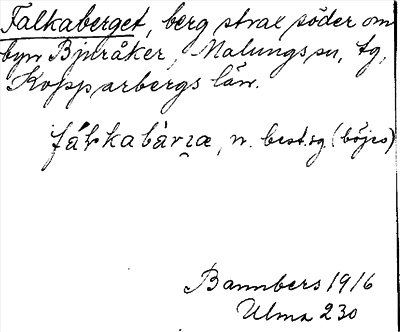 Falkaberget, berg strax söder om
byn Bjuråker, Malungs sn, tg,
Kopparbergs län.
fáɫkabàrɪæ, n. best. sg. (böjes)
Bannbers 1916
Ulma 230